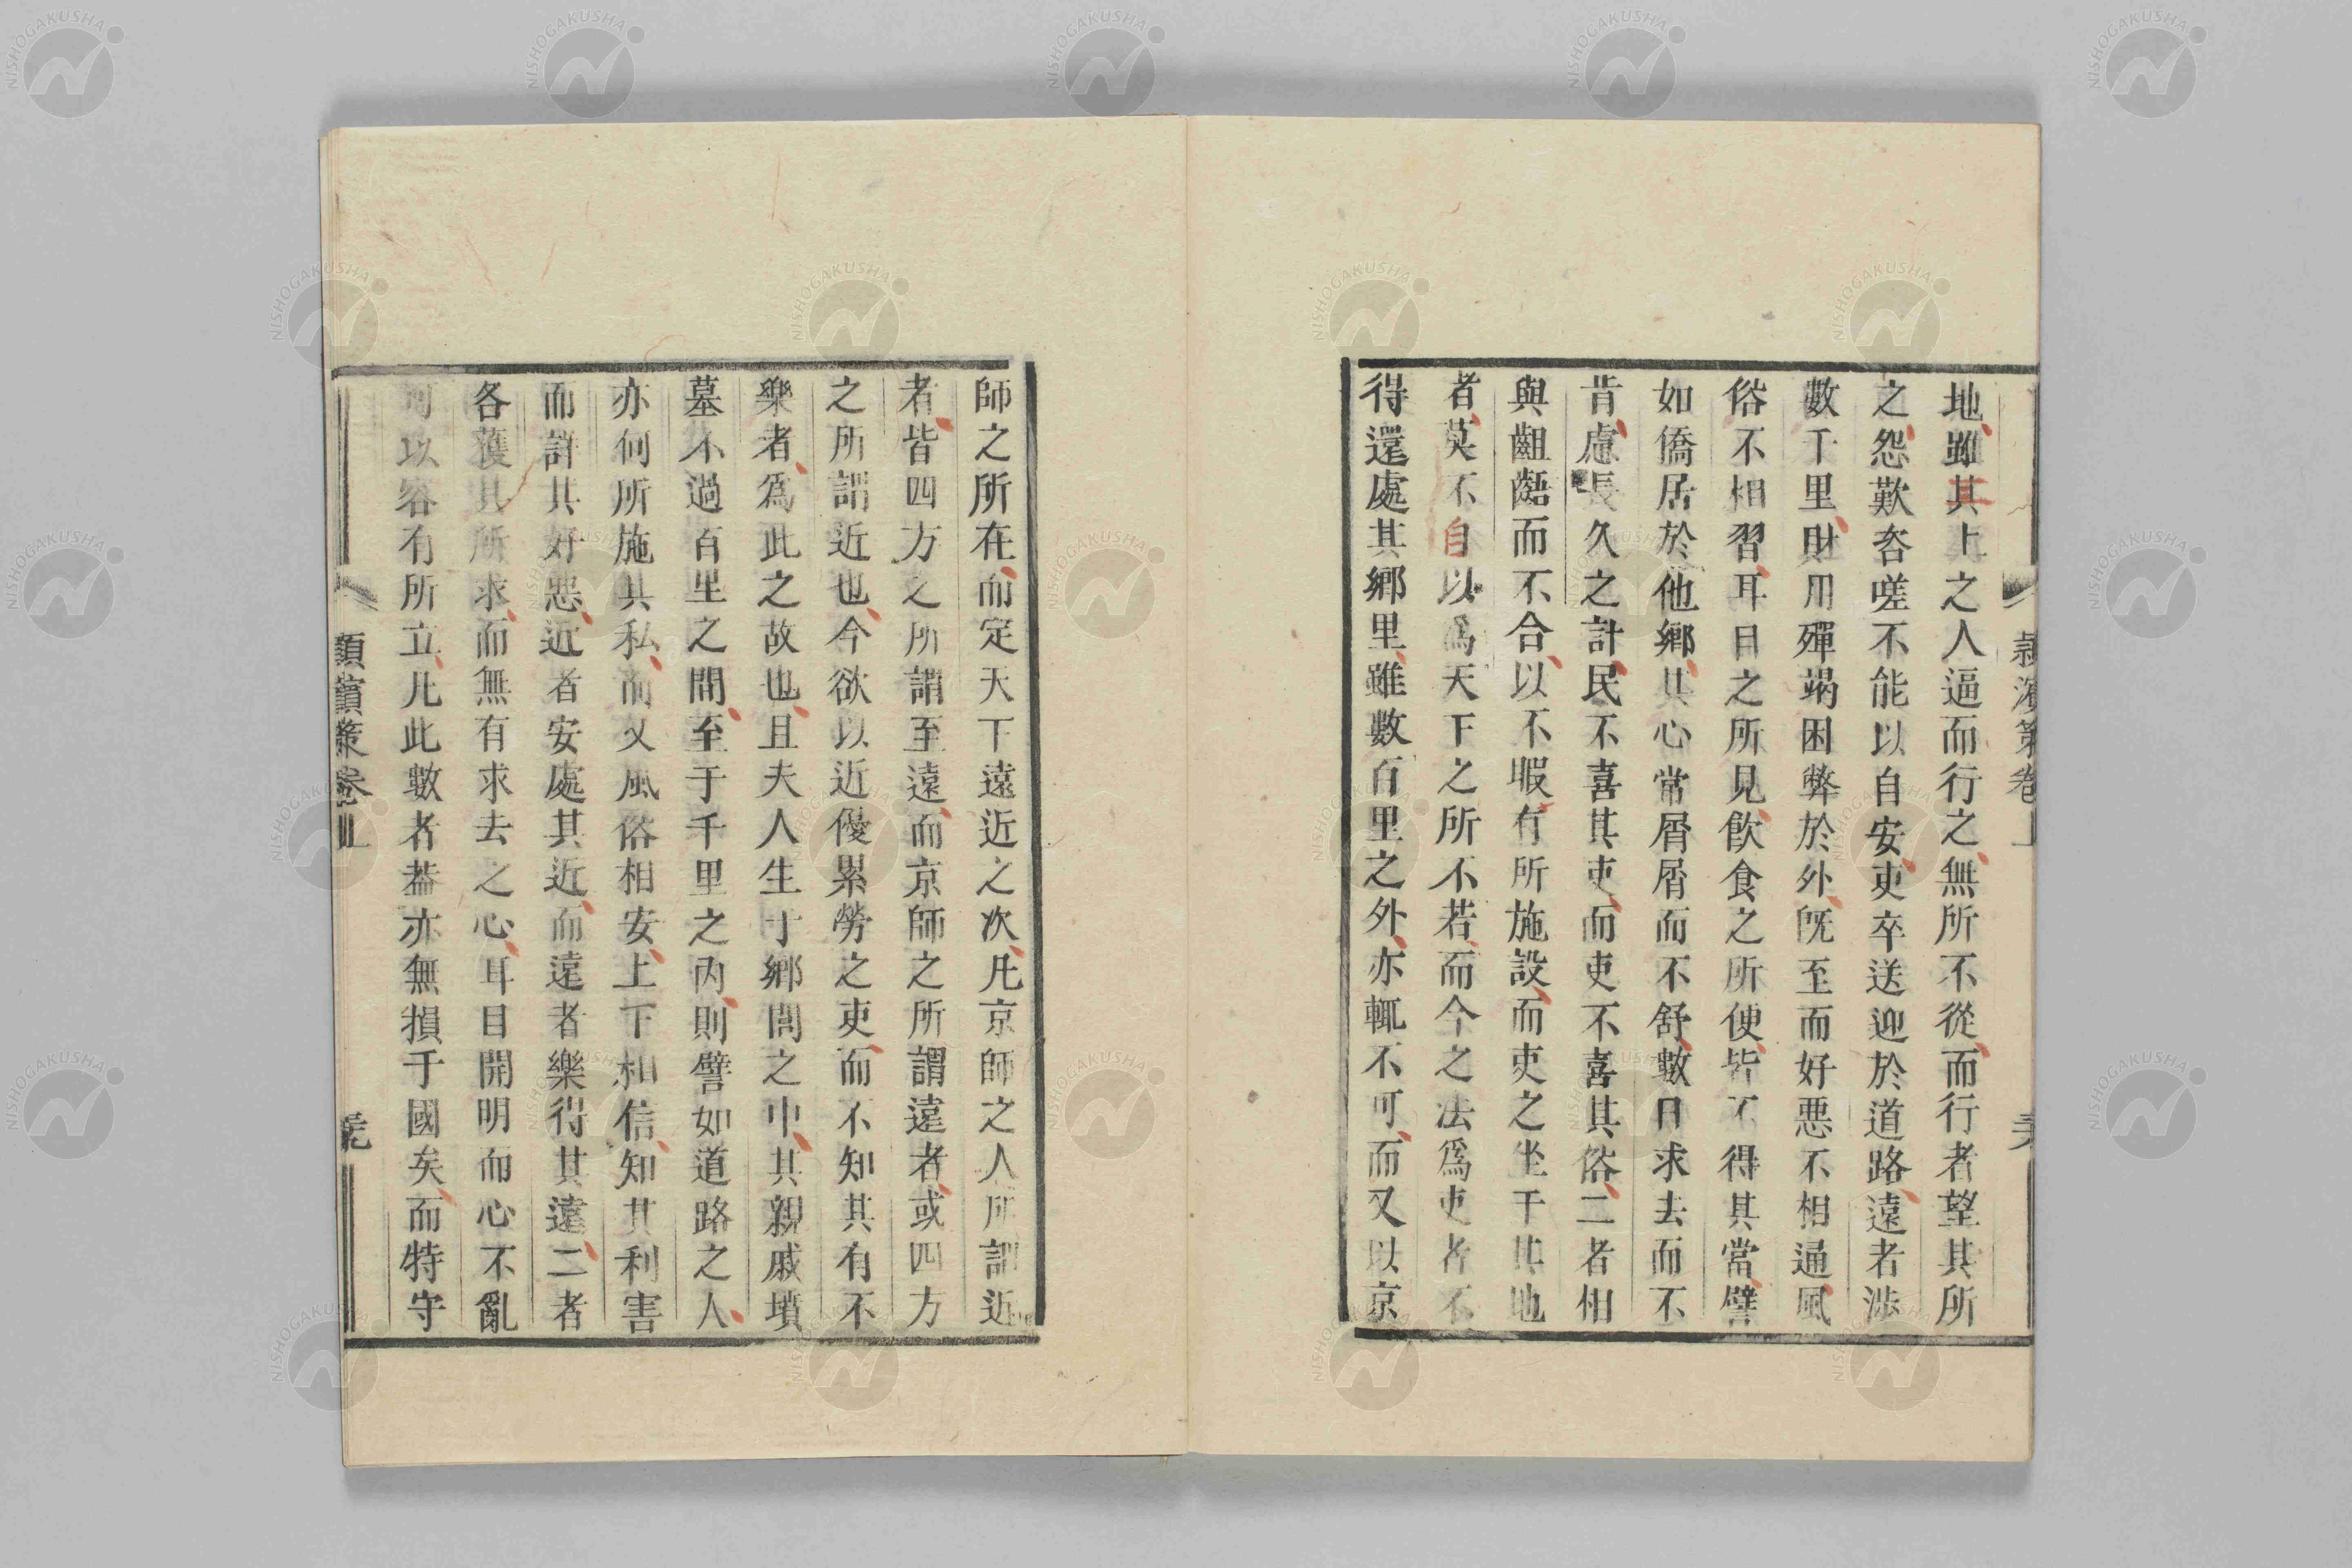 地雖其上之人逼而行之無所不從而行者望其所
之怨歎咨嗟不能以自安吏卒送迎於道路遠者涉
數千里財用殫竭困弊於外既至而好惡不相通風
俗不相習耳目之所見飲食之所便皆不得其當譬
如僑居於他鄉其心常屑屑而不舒數日求去而不
肯慮長久之計民不喜其吏而吏不喜其俗二者相
與齟齬而不合以不暇有所施設而吏之坐于其地
者莫不自以爲天下之所不若而今之法爲吏者不
得還處其鄉里雖數百里之外亦輒不可而又以京
師之所在而定天下遠近之次凡京師之人所謂近
者皆四方之所謂至遠而京師之所謂遠者或四方
之所謂近也今欲以近優累勞之吏而不知其有不
樂者爲此之故也且夫人生于鄉閭之中其親戚墳
墓不過百里之間至于千里之內則譬如道路之人
亦何所施其私而又風俗相安上下相信知其利害
而詳其好惡近者安處其近而遠者樂得其遠二者
各獲其所求而無有求去之心耳目開明而心不亂
可以容有所立凡此數者蓋亦無損于國矣而特守
潁濱策卷上
NISHOGAKUSHA